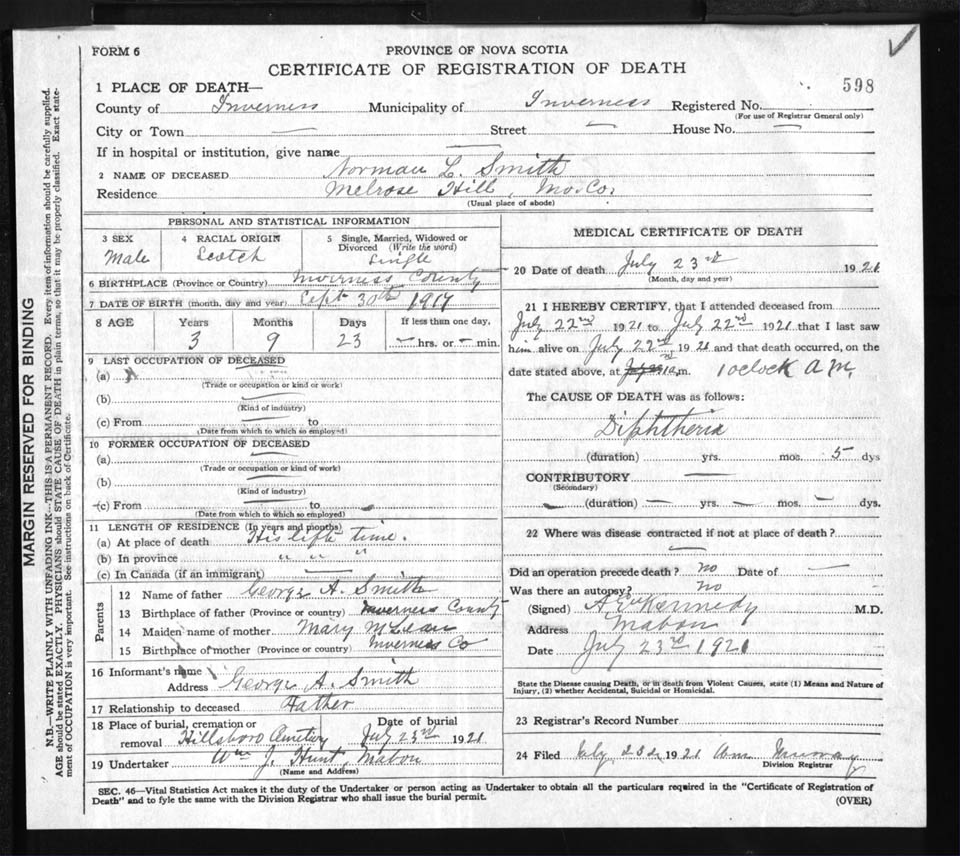 FORM 6
PROVINCE OF NOVA SCOTIA
CERTIFICATE OF REGISTRATION OF DEATH
598
1 PLACE OF DEATH—
County of Inverness Municipality of Inverness Registered No.
(For use of Registrar General only)
City or Town — Street — House No. —
If in hospital or institution, give name —
2 NAME OF DECEASED Norman L. Smith
Residence Melrose Hill, Inv. Co.
(Usual place of abode)
PERSONAL AND STATISTICAL INFORMATION
3 SEX 4 RACIAL ORIGIN 5 Single, Married, Widowed or
Divorced (Write the word)
Male Scotch Single
6 BIRTHPLACE (Province or Country) Inverness County
7 DATE OF BIRTH (month, day and year) Sept 30th 1917
8 AGE Years Months Days If less than one day,
3 9 23 — hrs. or — min.
9 LAST OCCUPATION OF DECEASED
(a)
(Trade or occupation or kind or work)
(b)
(Kind of industry)
(c) From to
(Date from which to which so employed)
10 FORMER OCCUPATION OF DECEASED
(a)
(Trade or occupation or kind of work)
(b)
(Kind of industry)
(c) From to
(Date from which to which so employed)
11 LENGTH OF RESIDENCE (In years and months)
(a) At place of death His life time.
(b) In province " " "
(c) In Canada (if an immigrant) —
Parents
12 Name of father George A. Smith
13 Birthplace of father (Province or country) Inverness County
14 Maiden name of mother Mary McLean
15 Birthplace of mother (Province or country) Inverness Co
16 Informant's name
Address George A. Smith
17 Relationship to deceased Father
18 Place of burial, cremation or Date of burial
removal Hillsboro Cemetery July 23rd 1921
19 Undertaker Wm J. Hunt, Mabou
(Name and Address)
MEDICAL CERTIFICATE OF DEATH
20 Date of death July 23rd 1921
(Month, day and year)
21 I HEREBY CERTIFY, that I attended deceased from
July 22nd 1921 to July 22nd 1921 that I last saw
him alive on July 22nd 1921 and that death occurred, on the
date stated above, at m. 1 oclock A M,
The CAUSE OF DEATH was as follows:
Diphtheria
(duration) yrs. mos. 5 dys
CONTRIBUTORY —
(Secondary)
— (duration) — yrs. — mos. — dys.
22 Where was disease contracted if not at place of death?
—
Did an operation precede death? no Date of —
Was there an autopsy? no
(Signed) Kennedy M.D.
Address Mabou
Date July 23rd 1921
State the Disease causing Death, or in death from Violent Causes, state (1) Means and Nature of
Injury, (2) whether Accidental, Suicidal or Homicidal.
23 Registrar's Record Number
24 Filed July 1921 Wm Murray
Division Registrar
SEC. 46—Vital Statistics Act makes it the duty of the Undertaker or person acting as Undertaker to obtain all the particulars required in the "Certificate of Registration of
Death" and to fyle the same with the Division Registrar who shall issue the burial permit.
(OVER)
MARGIN RESERVED FOR BINDING
N.B.—WRITE PLAINLY WITH UNFADING INK—THIS IS A PERMANENT RECORD. Every item of information should be carefully supplied.
AGE should be stated EXACTLY. PHYSICIANS should STATE CAUSE OF DEATH in plain terms, so that it may be properly classified. Exact state-
ment of OCCUPATION is very important. See instructions on back of Certificate.